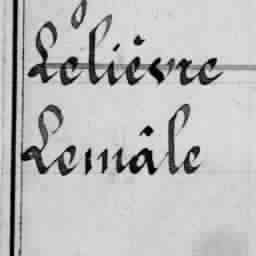 Lelièvre
Lemâle